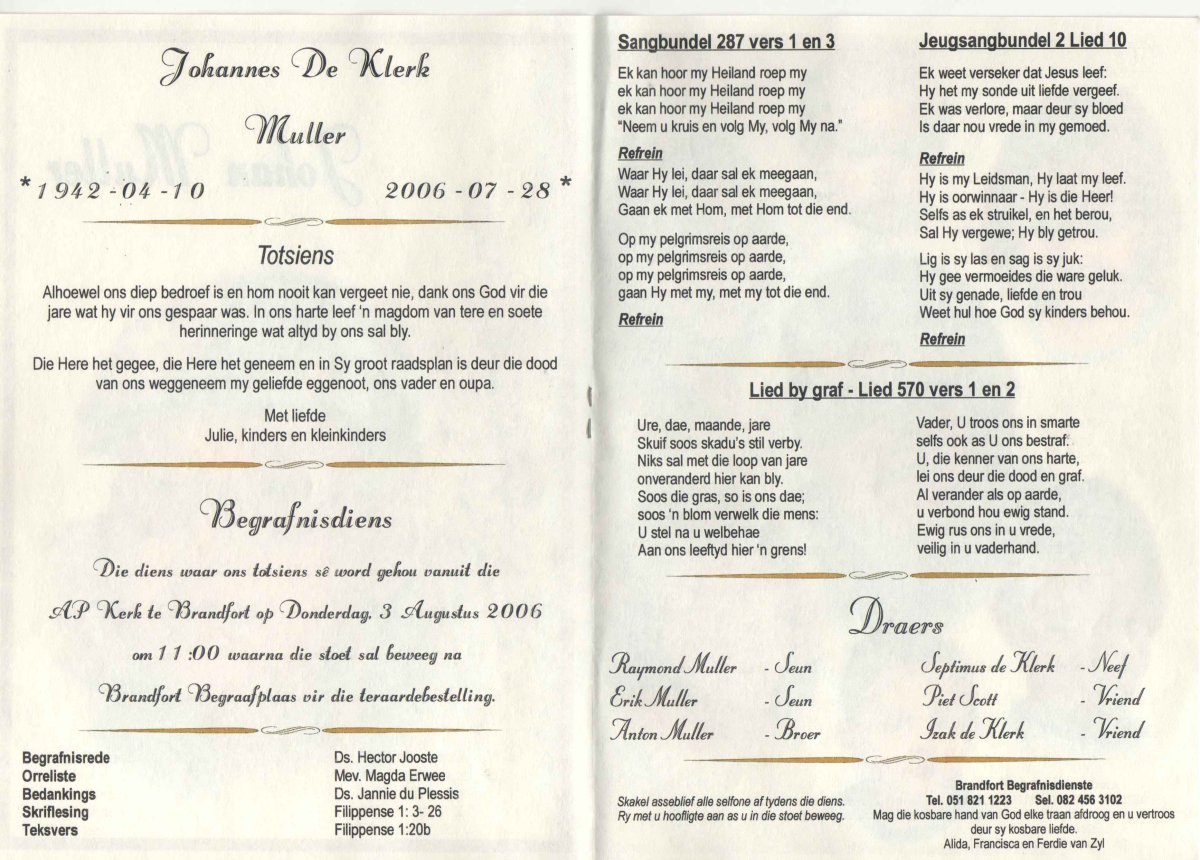 Johannes De Klerk
Muller
*1942-04-10 2006-07-28*
Totsiens
Alhoewel ons diep bedroef is en hom nooit kan vergeet nie, dank ons God vir die
jare wat hy vir ons gespaar was. In ons harte leef 'n magdom van tere en soete
herinneringe wat altyd by ons sal bly.
Die Here het gegee, die Here het geneem en in Sy groot raadsplan is deur die dood
van ons weggeneem my geliefde eggenoot, ons vader en oupa.
Met liefde
Julie, kinders en kleinkinders
Begrafnisdiens
Die diens waar ons totsiens sê word gehou vanuit die
AP Kerk te Brandfort op Donderdag, 3 Augustus 2006
om 11:00 waarna die stoet sal beweeg na
Brandfort Begraafplaas vir die teraardebestelling.
Begrafnisrede Ds. Hector Jooste
Orreliste Mev. Magda Erwee
Bedankings Ds. Jannie du Plessis
Skriflesing Filippense 1: 3- 26
Teksvers Filippense 1:20b
Sangbundel 287 vers 1 en 3
Ek kan hoor my Heiland roep my
ek kan hoor my Heiland roep my
ek kan hoor my Heiland roep my
"Neem u kruis en volg My, volg My na."
Refrein
Waar Hy lei, daar sal ek meegaan,
Waar Hy lei, daar sal ek meegaan,
Gaan ek met Hom, met Hom tot die end.
Op my pelgrimsreis op aarde,
op my pelgrimsreis op aarde,
op my pelgrimsreis op aarde,
gaan Hy met my, met my tot die end.
Refrein
Jeugsangbundel 2 Lied 10
Ek weet verseker dat Jesus leef:
Hy het my sonde uit liefde vergeef.
Ek was verlore, maar deur sy bloed
Is daar nou vrede in my gemoed.
Refrein
Hy is my Leidsman, Hy laat my leef.
Hy is oorwinnaar - Hy is die Heer!
Selfs as ek struikel, en het berou,
Sal Hy vergewe; Hy bly getrou.
Lig is sy las en sag is sy juk:
Hy gee vermoeides die ware geluk.
Uit sy genade, liefde en trou
Weet hul hoe God sy kinders behou.
Refrein
Lied by graf - Lied 570 vers 1 en 2
Ure, dae, maande, jare
Skuif soos skadu's stil verby.
Niks sal met die loop van jare
onveranderd hier kan bly.
Soos die gras, so is ons dae;
soos 'n blom verwelk die mens:
U stel na u welbehae
Aan ons leeftyd hier 'n grens!
Vader, U troos ons in smarte
selfs ook as U ons bestraf.
U, die kenner van ons harte,
lei ons deur die dood en graf.
Al verander als op aarde,
u verbond hou ewig stand.
Ewig rus ons in u vrede,
veilig in u vaderhand.
Draers
Raymond Muller - Seun
Erik Muller - Seun
Anton Muller - Broer
Septimus de Klerk - Neef
Piet Scott - Vriend
Izak de Klerk - Vriend
Skakel asseblief alle selfone af tydens die diens.
Ry met u hoofligte aan as u in die stoet beweeg.
Brandfort Begrafnisdienste
Tel. 051 821 1223 Sel. 082 456 3102
Mag die kosbare hand van God elke traan afdroog en u vertroos
deur sy kosbare liefde.
Alida, Francisca en Ferdie van Zyl
Johan Muller